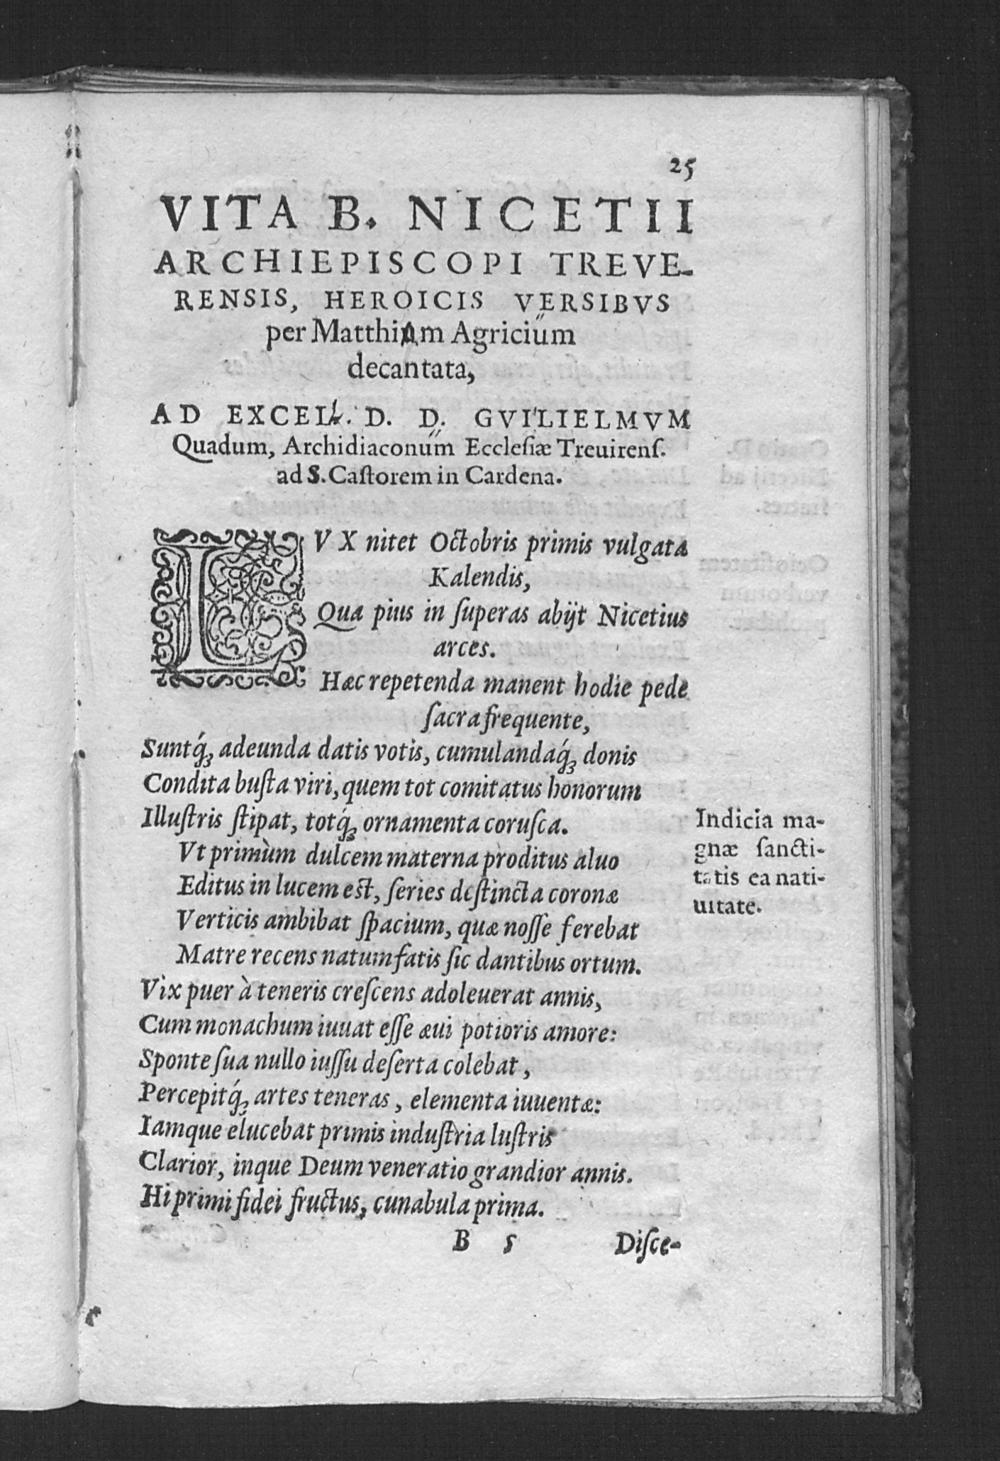 25
VITA B. NICETII
ARCHIEPISCOPI TREVE-
RENSIS, HEROICIS VERSIBVS
per Matthiam Agricium
decantata,
AD EXCELL. D. D. GVILIELMVM
Quadum, Archidiaconum Ecclesiæ Treuirens.
ad S. Castorem in Cardena.
LVX nitet Octobris primis vulgata
Kalendis,
Qua pius in superas abijt Nicetius
arces.
Hæc repetenda manent hodie pede
sacra frequente,
Suntq́; adeunda datis votis, cumulandaq́; donis
Condita busta viri, quem tot comitatus honorum
Illustris stipat, totq́; ornamenta corusca.
Vt primùm dulcem materna proditus aluo
Editus in lucem est, series destincta coronæ
Verticis ambibat spacium, quæ nosse ferebat
Matre recens natum fatis sic dantibus ortum.
Vix puer à teneris crescens adoleuerat annis,
Cum monachum iuuat esse æui potioris amore:
Sponte sua nullo iussu deserta colebat,
Percepitq́; artes teneras, elementa iuuentæ:
Iamque elucebat primis industria lustris
Clarior, inque Deum veneratio grandior annis.
Hi primi fidei fructus, cunabula prima.
Indicia ma-
gnæ sancti-
tatis ea nati-
uitate.
B 5 Disce-